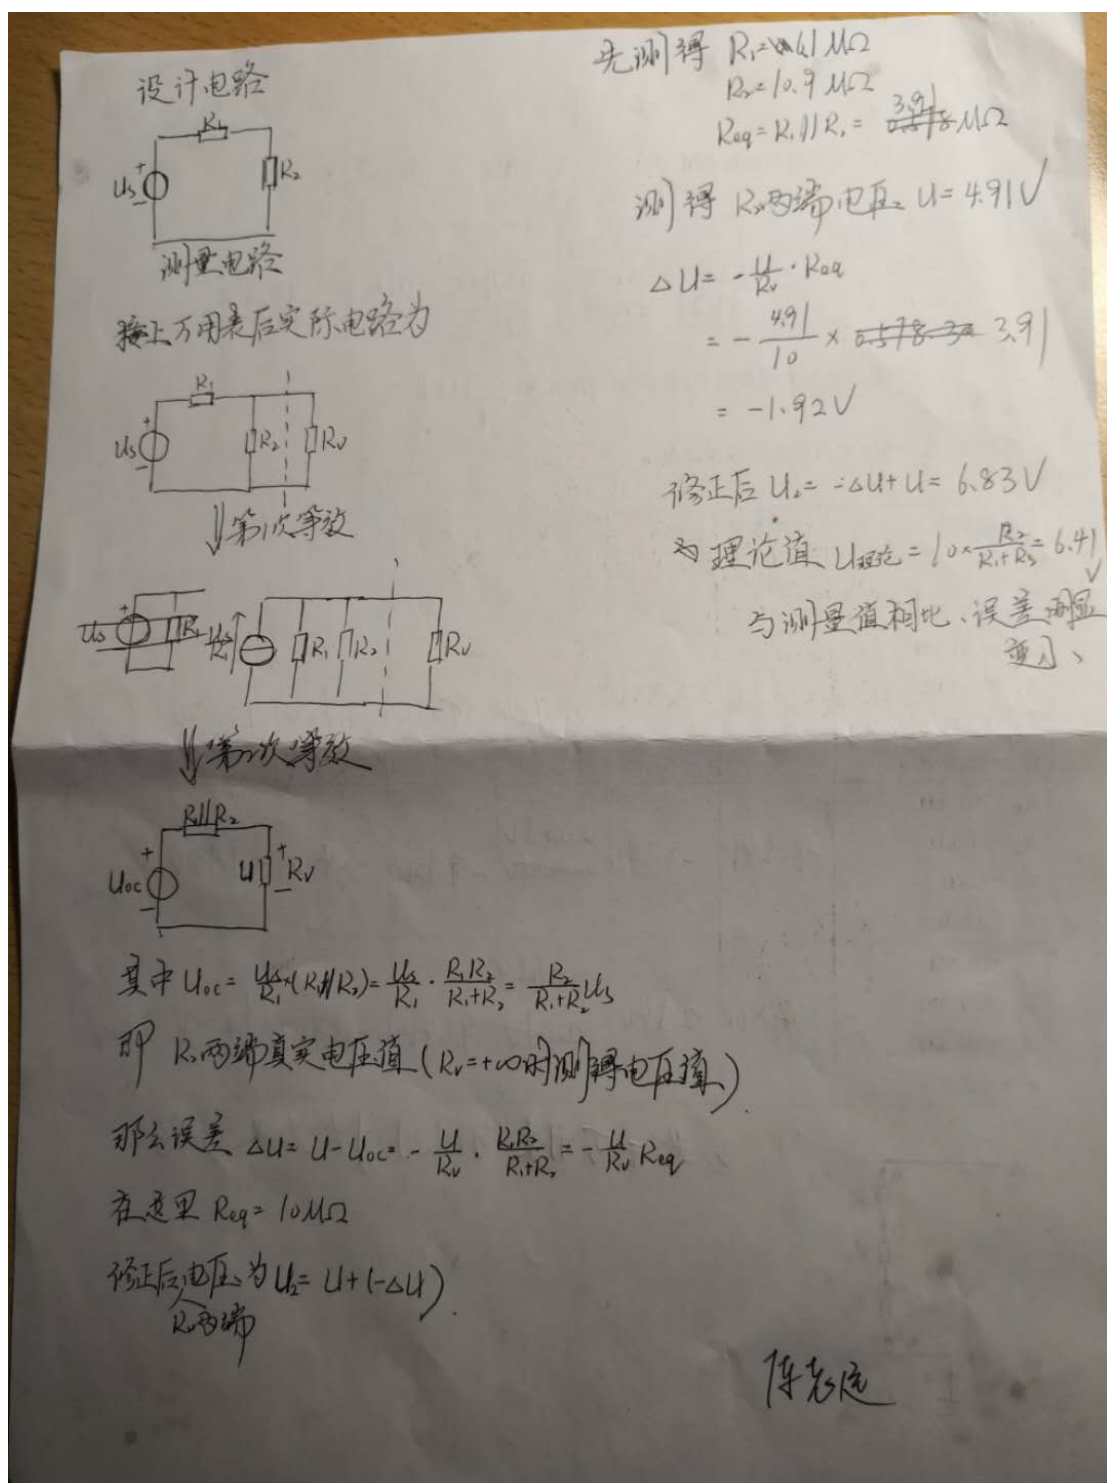 设计电路
R₁
Us
+
-
R₂
测量电路
接上万用表后实际电路为
R₁
Us
+
-
R₂
Rv
⇓第1次等效
R₁
R₂
Rv
⇓第2次等效
R₁//R₂
Uoc
+
-
U
+
-
Rv
其中 Uoc = Us/R₁×(R₁//R₂) = Us/R₁ · R₁R₂/(R₁+R₂) = R₂/(R₁+R₂) Us
即 R₂两端真实电压值(Rv=+∞时测得电压值)
那么误差 ΔU = U - Uoc = - U/Rv · R₁R₂/(R₁+R₂) = - U/Rv Req
在这里 Req = 10MΩ
修正后电压为 U₂ = U+(-ΔU).
R₂两端
先测得 R₁= 6.1 MΩ
R₂=10.9 MΩ
Req = R₁//R₂ = 3.91 MΩ
测得 R₂两端电压 U = 4.91V
ΔU = - U/Rv · Req
= - 4.91/10 × 3.91
= -1.92V
修正后 U₂ = -ΔU+U = 6.83V
理论值 U理论 = 10×R₂/(R₁+R₂) = 6.41
V
与测量值相比、误差明显
变小、